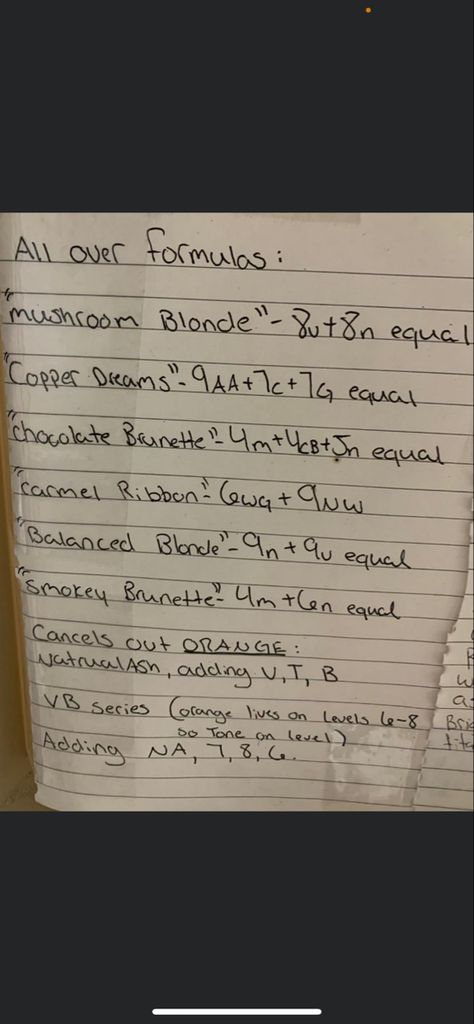 All over formulas:
"mushroom Blonde" - 8v+8n equal
"Copper Dreams" - 9AA+7C+7G equal
"chocolate Brunette" - 4m+4CB+5n equal
"Carmel Ribbon" - 6WG + 9NW
"Balanced Blonde" - 9n + 9v equal
"Smokey Brunette" - 4m+6n equal
Cancels out ORANGE:
NatrualAsh, adding V, T, B
VB series (orange lives on levels 6-8
so Tone on level)
Adding NA, 7, 8, 6.